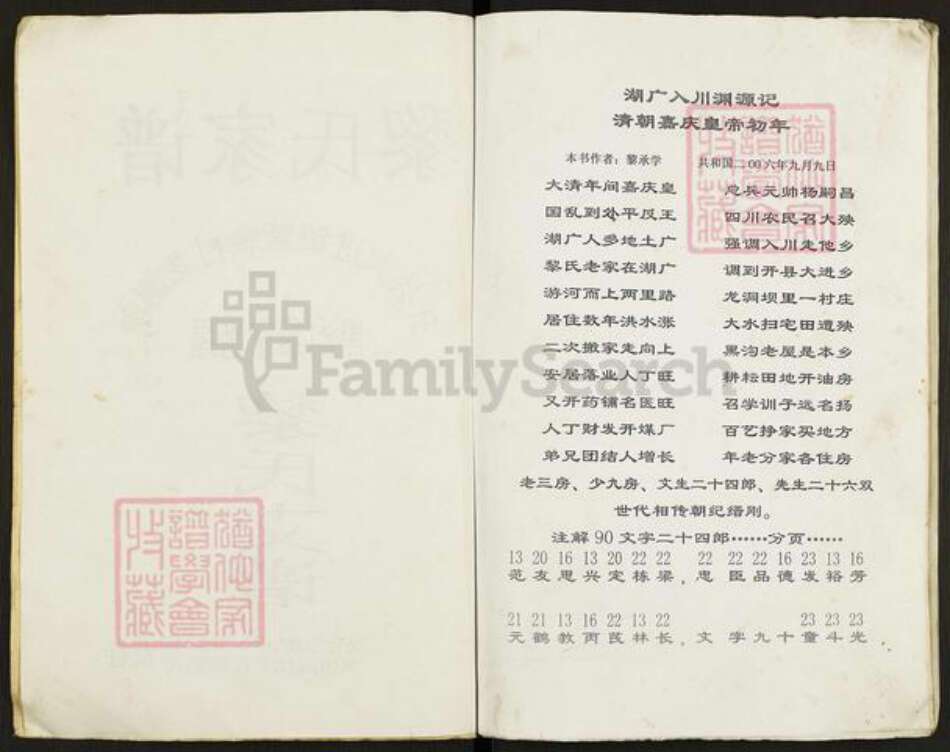 湖广入川渊源记
清朝嘉庆皇帝初年
本书作者：黎承学 共和国二00六年九月九日
大清年间嘉庆皇 总兵元帅杨嗣昌
国乱到处平反王 四川农民召大殃
湖广人多地土广 强调入川走他乡
黎氏老家在湖广 调到开县大进乡
游河而上两里路 龙洞坝里一村庄
居住数年洪水涨 大水扫宅田遭殃
二次搬家走向上 黑沟老屋是本乡
安居落业人丁旺 耕耘田地开油房
又开药铺名医旺 召学训子远名扬
人丁财发开煤厂 百艺挣家买地方
弟兄团结人增长 年老分家各住房
老三房、少九房、文生二十四郎、先生二十六双
世代相传朝纪绪刚。
注解90文字二十四郎……分页……
13 20 16 13 20 22 22 22 22 22 16 23 13 16
范友思兴定栋梁，忠臣品德发裕芳
21 21 13 16 22 13 22 23 23 23
元鹤教丙民林长，文字九十童斗光
黎氏家谱
FamilySearch
犹他家谱学会收藏
犹他家谱学会收藏